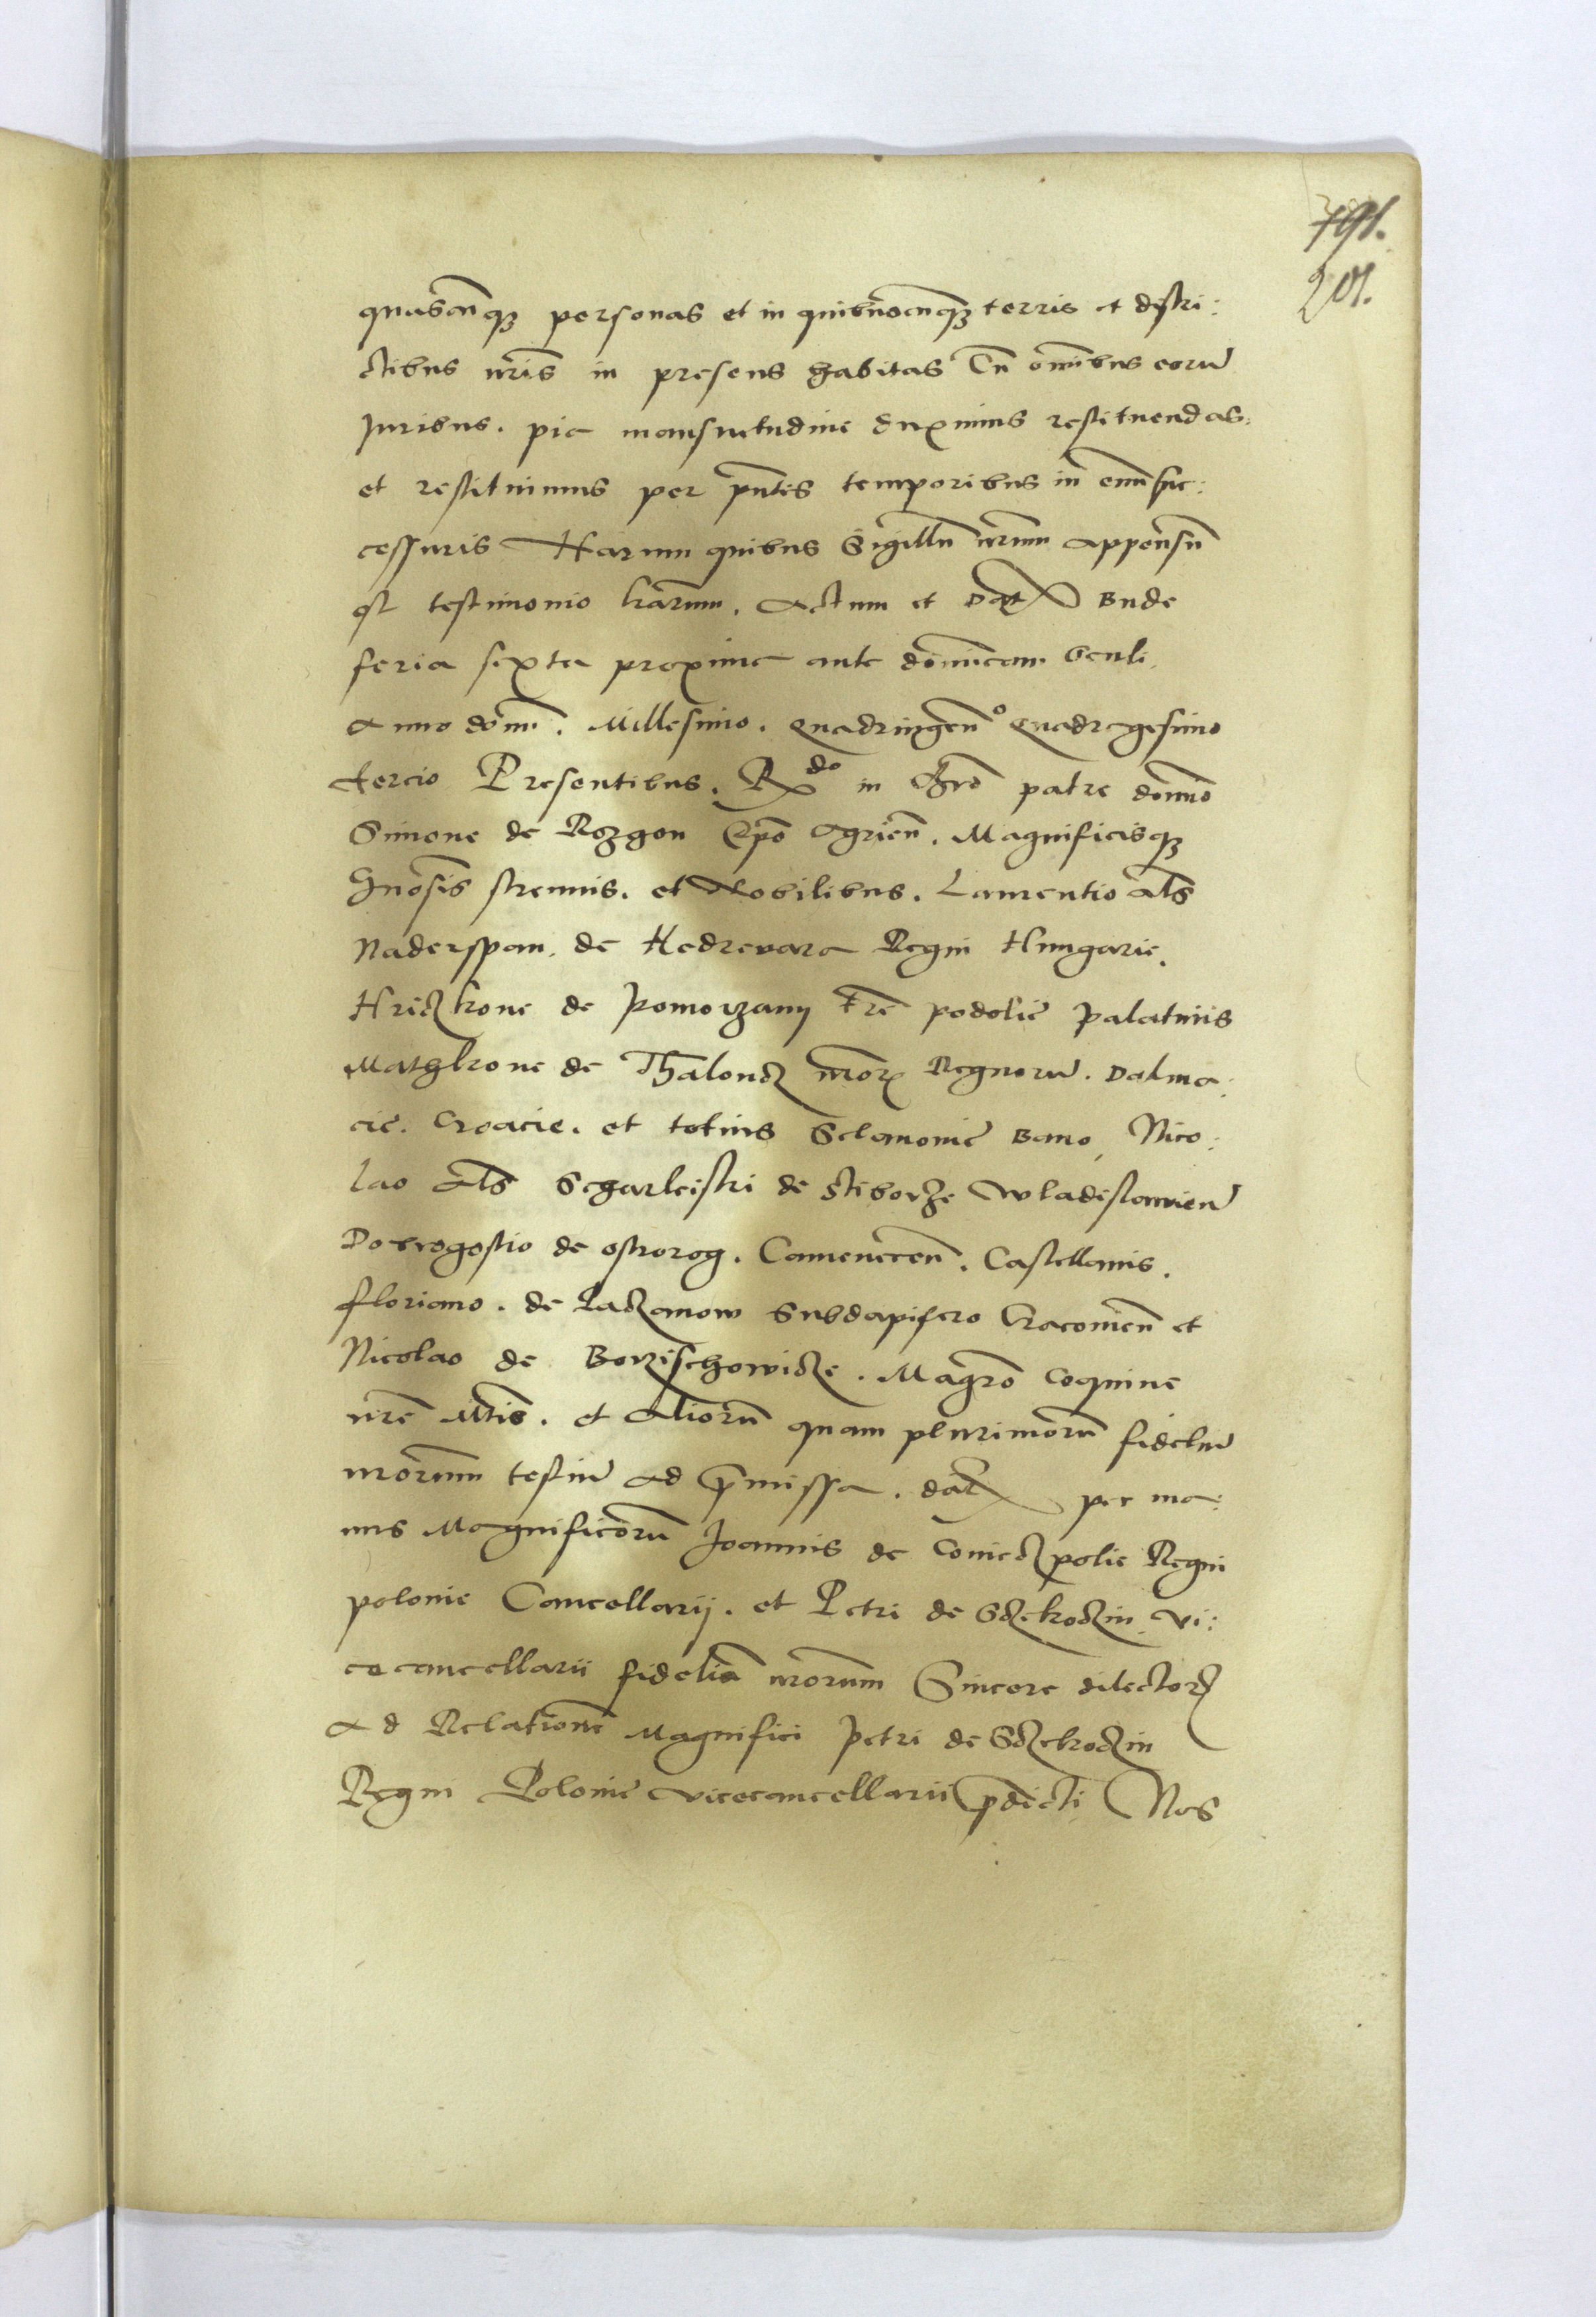 791.
201.
quascunq₃ personas et in quibuscunq₃ terris et distri:
ctibus nr̄is in presens habitas Cū om̄ibus eorū
Iuribus. pia mansuetudine duximus restituendas.
et restituimus per pn̄tis temporibus in euū suc:
cessuris Harum quibus Sigillū nr̄um appensū
est testimonio lr̄arum. Actum et Dat Bude
feria sexta proxima ante dominicam Oculi
Anno domī. Millesimo. Quadringenᵒ Quadragesimo
tercio Presentibus. Rᵈᵒ in Chrō patre domīo
Simone de Rozgon Ep̄o Agrien̄. Magnificisq₃
Gn̄osis strenuis. et Nobilibus. Laurentio al̄s
Naderspan. de Hedrevara Regni Hungarie.
Hriczkone de Pomorzany Tr̄e podolie Palatinis
Mathkone de Thaloncz nr̄or Regnorū. Dalma:
cie. Croacie. et totius Sclavonie Bano, Nico:
lao al̄s Scharleistri de Stiborze Wladislavien̄
Dobrogostio de ostrorog. Camenecen̄. Castellanis.
floriano. de Laczanow Subdapifero Cracovien̄ et
Nicolao de Borzischowicze. Magrō Coquine
nr̄e Mtis. et Aliorū quam plurimorū fideliū
nr̄orum testiū ad p̄missa. dat per ma:
nus Magnificorū Joannis de Conieczpolie Regni
polonie Cancellarij. et Petri de Sczekoczin Vi:
cecancellarii fideliū nr̄orum Sincere dilector
Ad Relationē Magnifici Petri de Sczekoczin
Regni Polonie vicecancellarii p̄dicti Nos